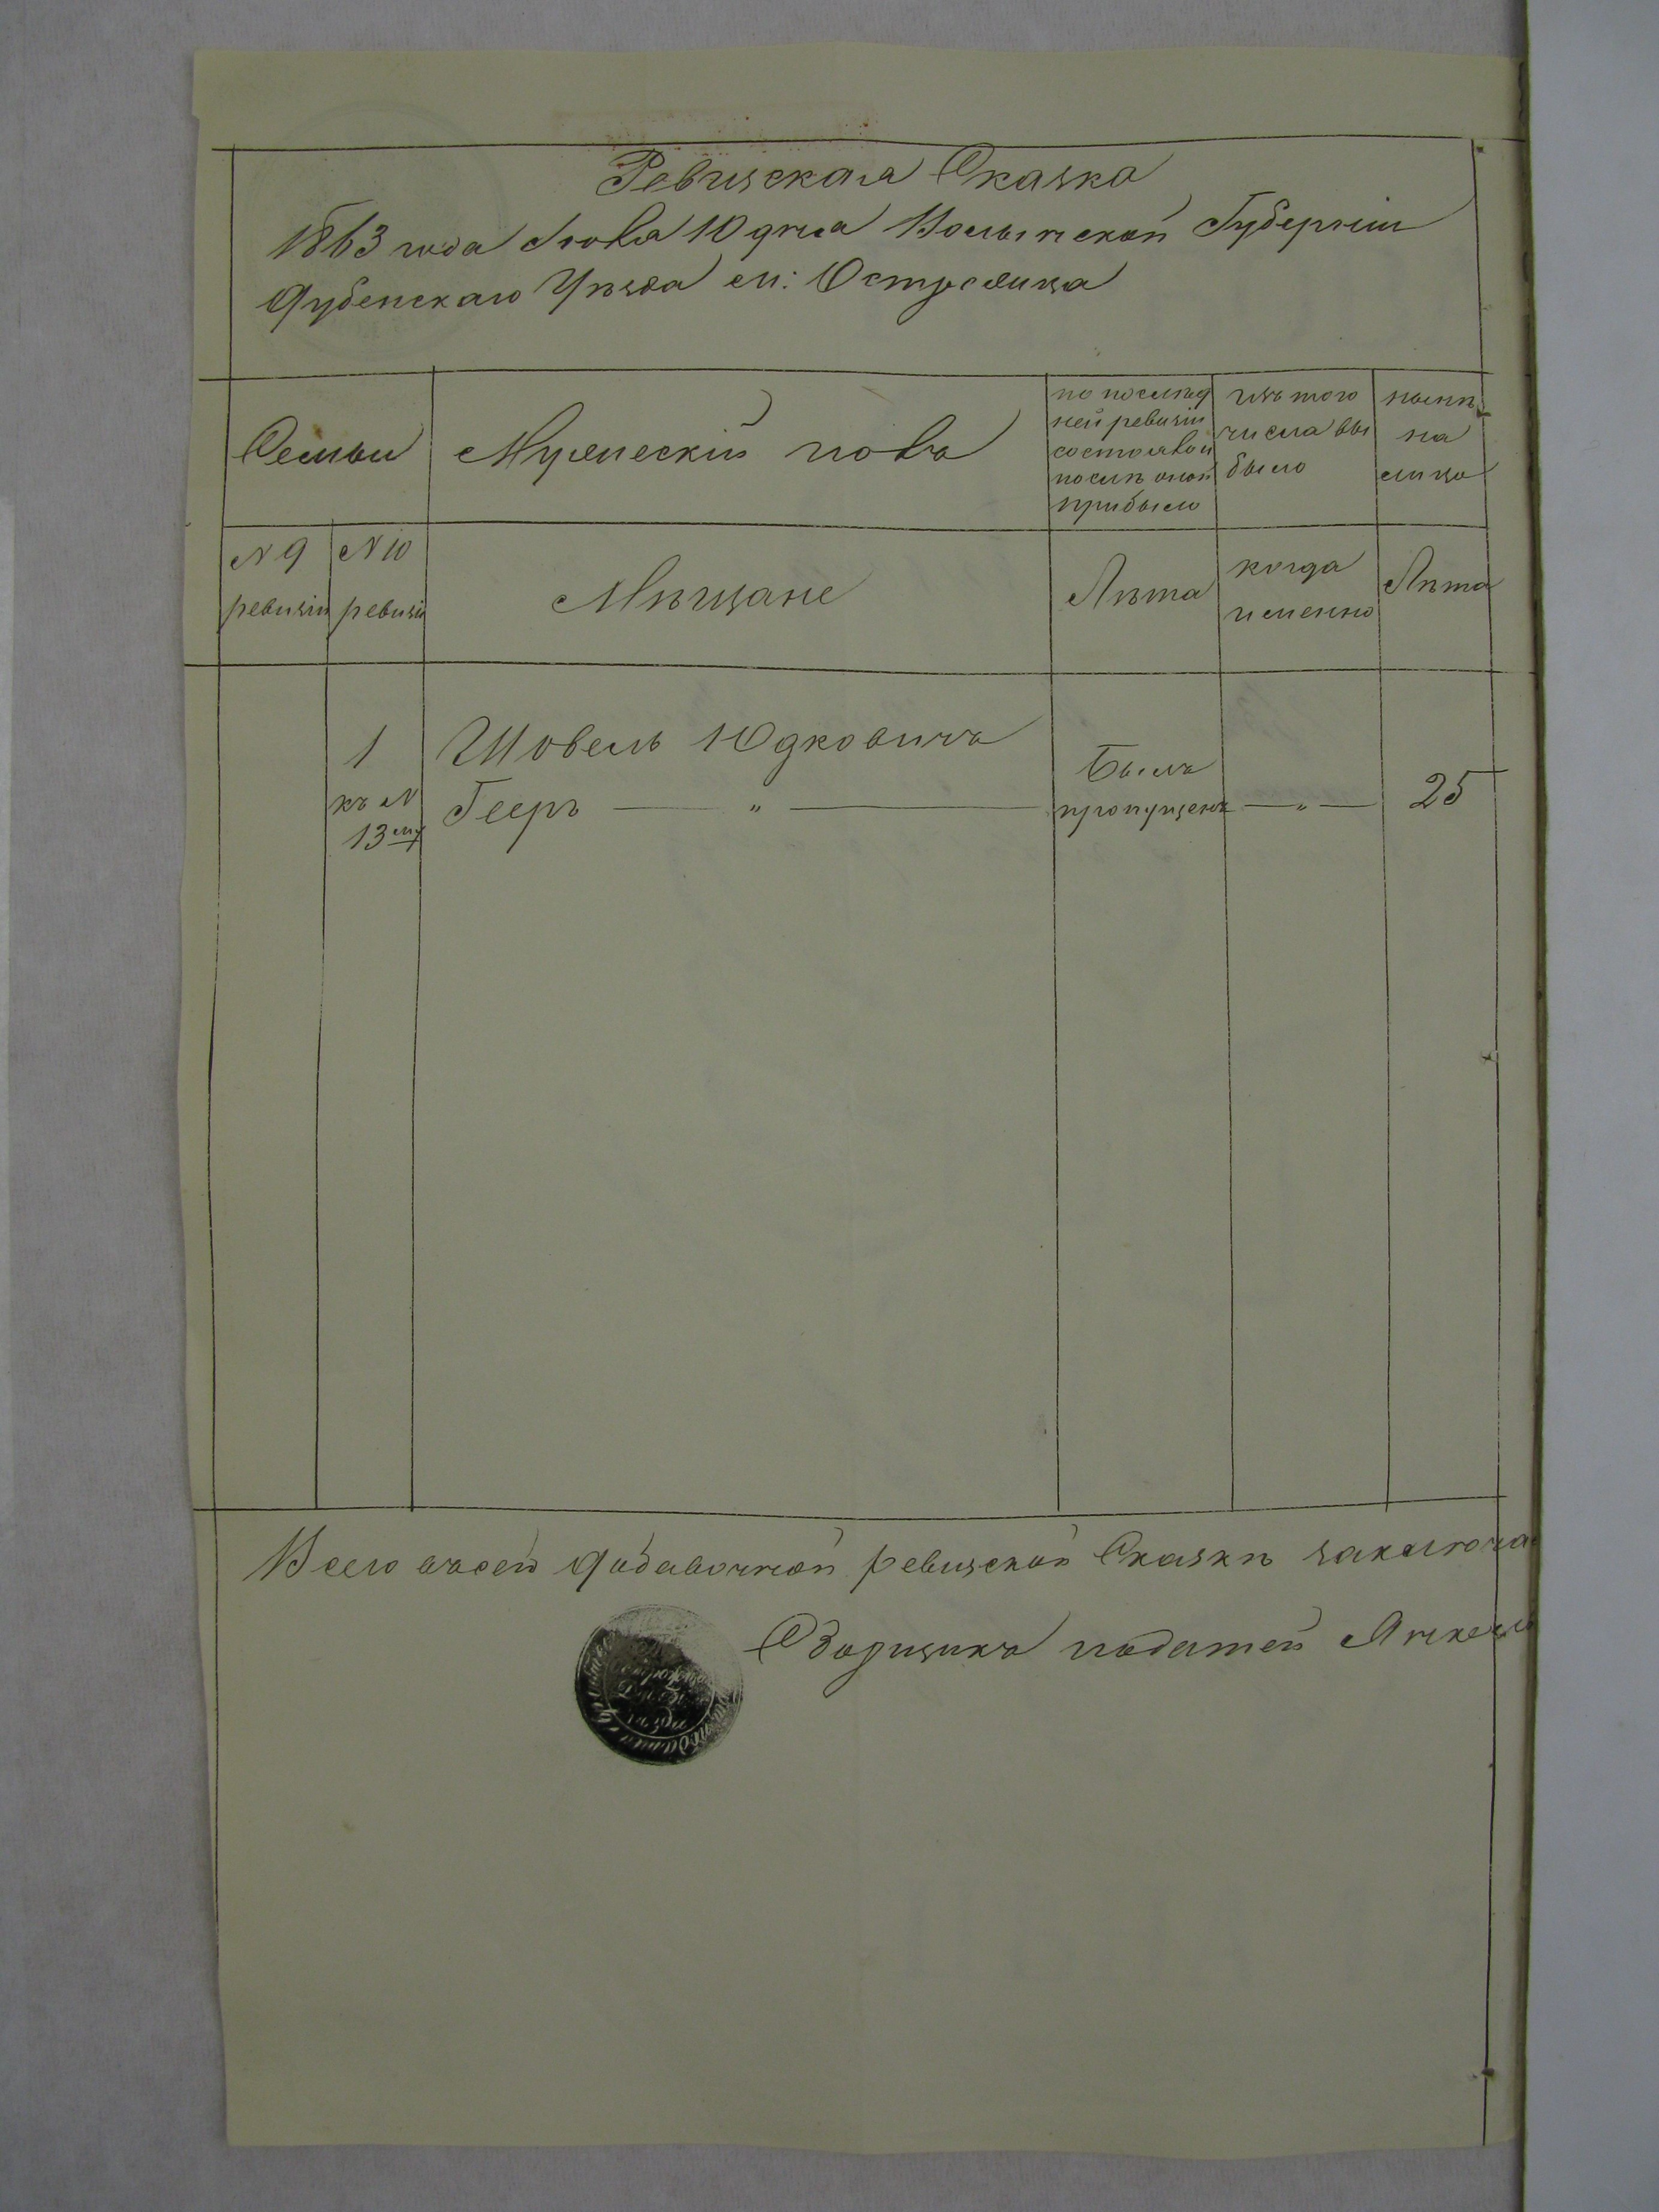 Ревизская Сказка
1863 года Іюля 10 дня Волынской Губерніи
Дубенскаго Уѣзда м: Острожица
Семьи
Мужескій полъ
по послѣд
ней ревизіи
состоялои
послѣ оной
прибыло
изъ того
числа вы
было
нынѣ
на
лицо
N 9
ревизіи
N 10
ревизіи
Мѣщане
Лѣта
когда
именно
Лѣта
1
къ N
13му
Шовель Юдковичъ
Гееръ — " —
Былъ
пропущенъ
— " —
25
Всего въ сей добавочной ревизской Сказкѣ заключа
Сборщикъ податей Янкель